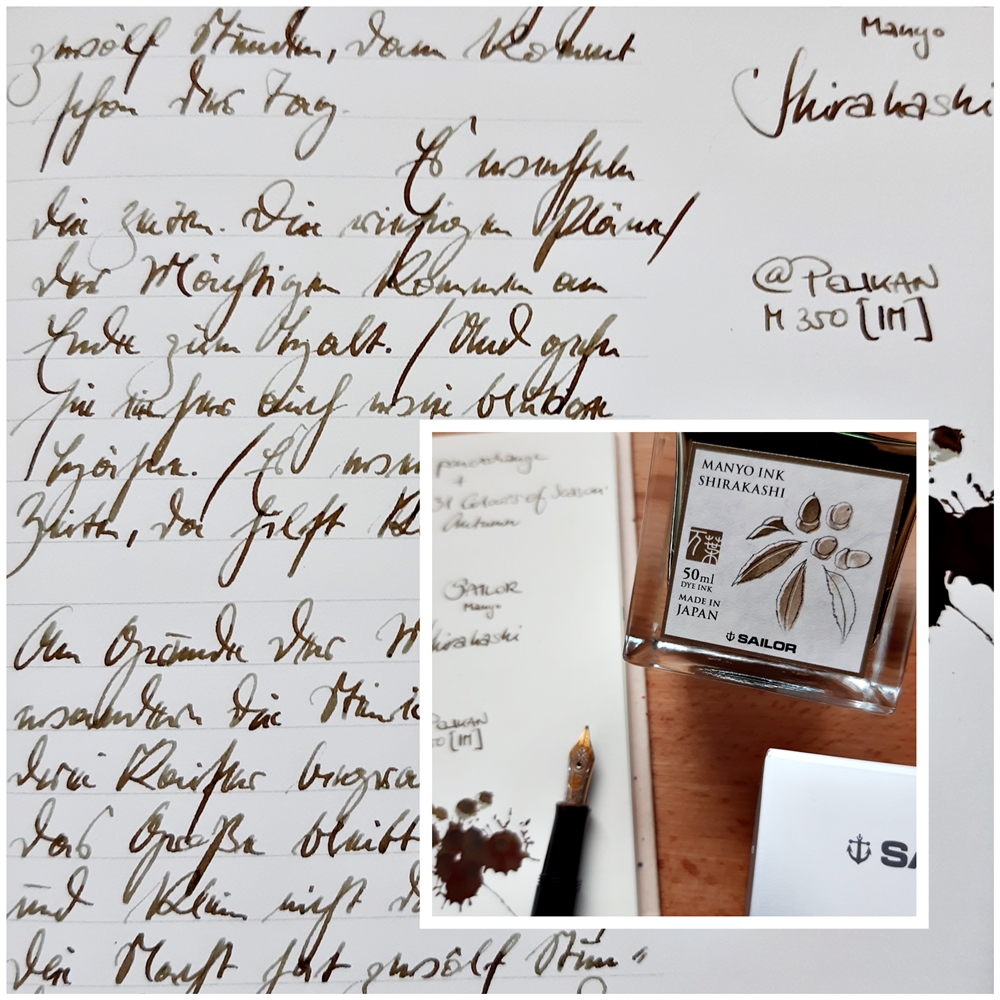 zwölf Stunden, dann kommt
schon der Tag.
Es wechseln
die Zeiten. Die riesigen Pläne/
der Mächtigen kommen am
Ende zum Halt. /Und gehn
sie einher auch wie blutige
Hähne. /Es wech
Zeiten, da hilft k
Am Grunde der M
wandern die Steine
drei Kaiser begra
das Große bleibt
und klein nicht d
die Nacht hat zwölf Stun"
Manyo
Shirakashi
@PELIKAN
M 350 [IM]
31 Colours of Season
Autumn
SAILOR
Manyo
hirakashi
PELIKAN
50 [IM]
MANYO INK
SHIRAKASHI
万葉
50ml
DYE INK
MADE IN
JAPAN
SAILOR
SA